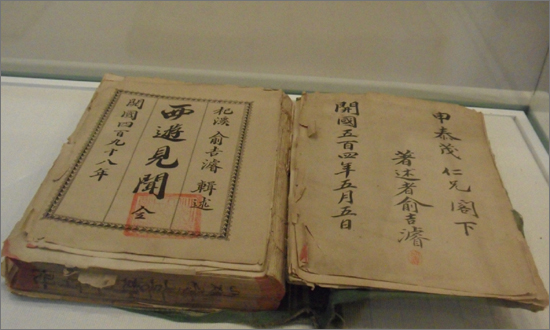 申泰茂仁兄閣下
著述者俞吉濬
開國五百四年五月五日
杞溪 俞吉濬 輯述
西遊見聞 全
開國四百九十八年